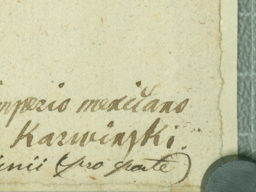 imperio mexicano
Karwinski.
(pro parte)